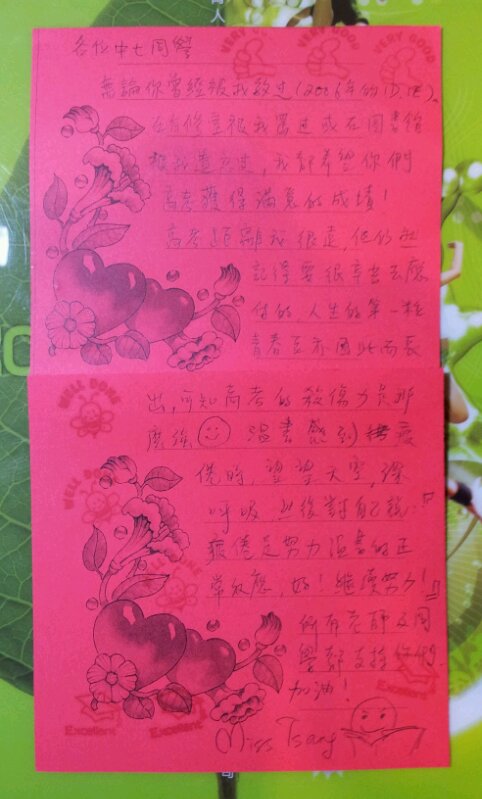 各位中七同學
無論你曾經被我教過(2006年的1D,1E)、
在自修室被我罵過或在圖書館
被我遇見過,我都希望你們
高考獲得滿意的成績!
高考距離我很遠,但仍然
記得要很辛苦去應
付的,人生的第一粒
青春豆亦因此而長
出,可知高考的殺傷力是那
麼強 溫書感到疲
倦時,望望天空,深
呼吸,然後對自己說:『
疲倦是努力溫書的正
常反應,好!繼續努力!』
所有老師及同
學都支持你們,
加油!
Miss Tsang
VERY GOOD
VERY GOOD
VERY GOOD
WELL DONE
WELL DONE
WELL DONE
Excellent
Excellent
Excellent